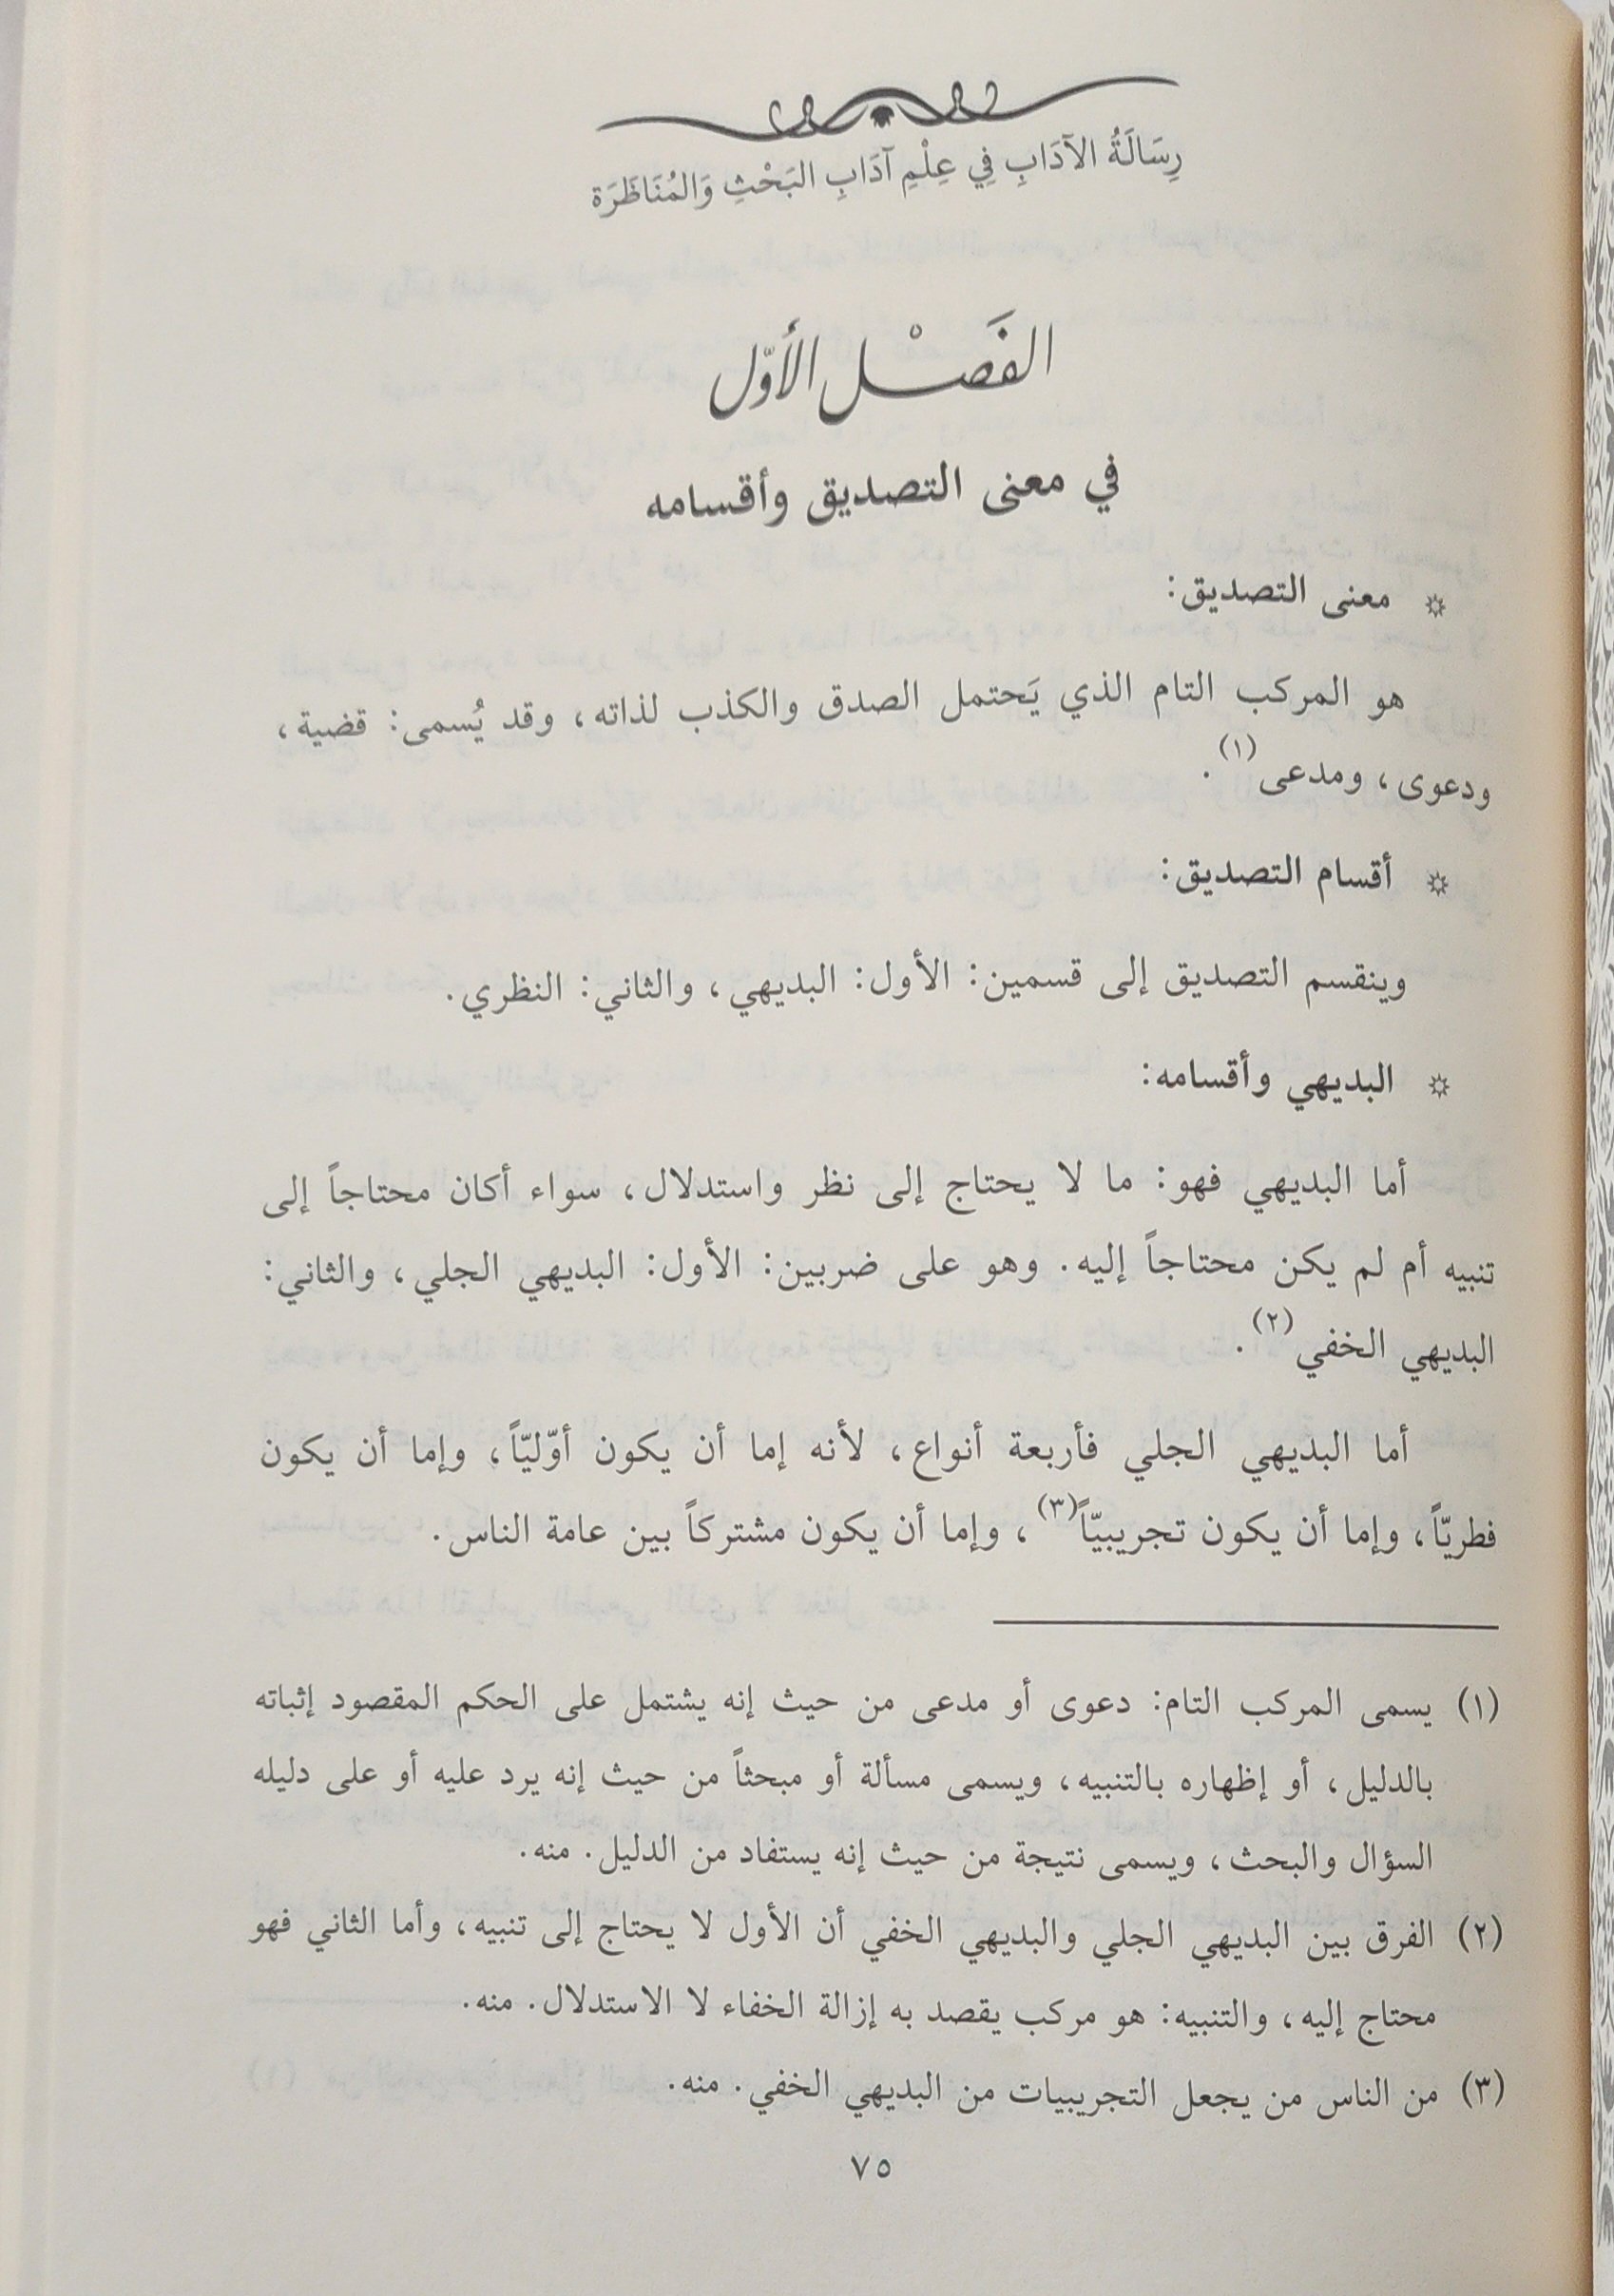 رِسَالَةُ الآدَابِ فِي عِلْمِ آدَابِ البَحْثِ وَالمُنَاظَرَة
الفَصْل الأَوّل
في معنى التصديق وأقسامه
☼ معنى التصديق:
هو المركب التام الذي يَحتمل الصدق والكذب لذاته، وقد يُسمى: قضية،
ودعوى، ومدعى(١).
☼ أقسام التصديق:
وينقسم التصديق إلى قسمين: الأول: البديهي، والثاني: النظري.
☼ البديهي وأقسامه:
أما البديهي فهو: ما لا يحتاج إلى نظر واستدلال، سواء أكان محتاجاً إلى
تنبيه أم لم يكن محتاجاً إليه. وهو على ضربين: الأول: البديهي الجلي، والثاني:
البديهي الخفي(٢).
أما البديهي الجلي فأربعة أنواع، لأنه إما أن يكون أوّليّاً، وإما أن يكون
فطريّاً، وإما أن يكون تجريبيّاً(٣)، وإما أن يكون مشتركاً بين عامة الناس.
(١) يسمى المركب التام: دعوى أو مدعى من حيث إنه يشتمل على الحكم المقصود إثباته
بالدليل، أو إظهاره بالتنبيه، ويسمى مسألة أو مبحثاً من حيث إنه يرد عليه أو على دليله
السؤال والبحث، ويسمى نتيجة من حيث إنه يستفاد من الدليل. منه.
(٢) الفرق بين البديهي الجلي والبديهي الخفي أن الأول لا يحتاج إلى تنبيه، وأما الثاني فهو
محتاج إليه، والتنبيه: هو مركب يقصد به إزالة الخفاء لا الاستدلال. منه.
(٣) من الناس من يجعل التجريبيات من البديهي الخفي. منه.
٧٥